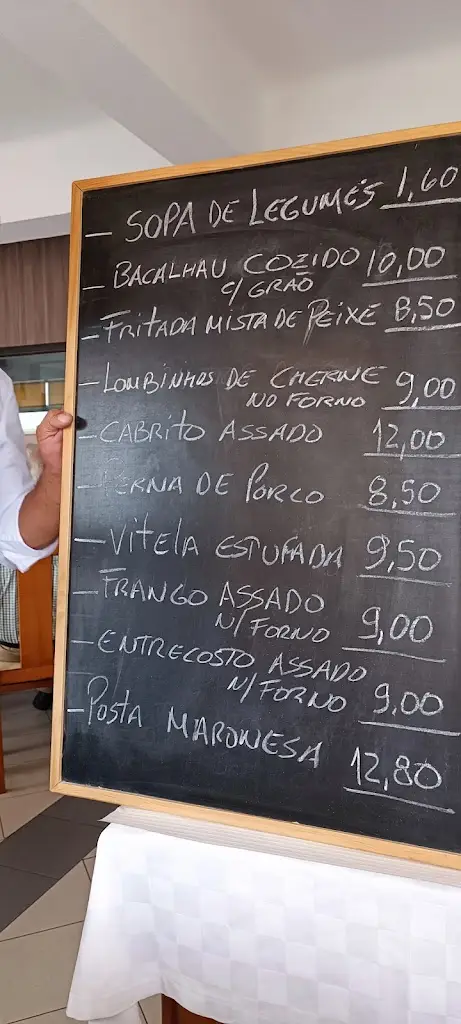 - SOPA DE LEGUMES 1,60
- BACALHAU COZIDO 10,00
C/ GRÃO
- FRITADA MISTA DE PEIXE 8,50
- LOMBINHOS DE CHERNE
NO FORNO 9,00
- CABRITO ASSADO 12,00
- PERNA DE PORCO 8,50
- VITELA ESTUFADA 9,50
- FRANGO ASSADO
N/ FORNO 9,00
- ENTRECOSTO ASSADO
N/ FORNO 9,00
- POSTA MARONESA 12,80